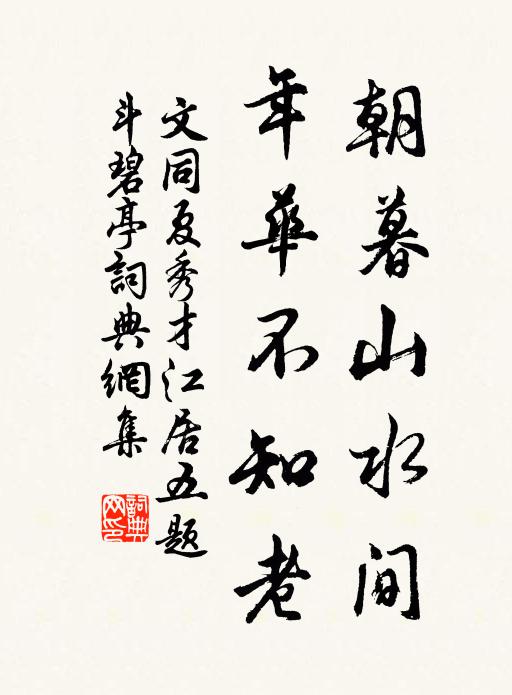 朝暮山水间
年华不知老
文同夏秀才江居五题
斗碧亭詞典網集
詞典網印